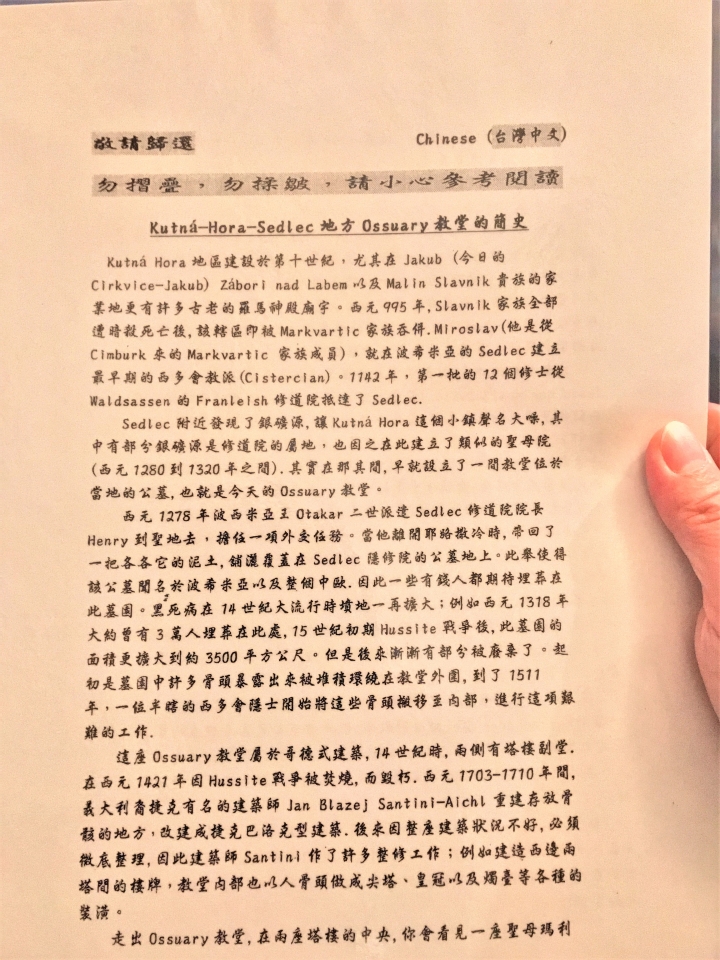 敬請歸還
Chinese (台灣中文)
勿摺疊，勿揉皺，請小心參考閱讀
Kutná-Hora-Sedlec 地方 Ossuary 教堂的簡史
Kutná Hora 地區建設於第十世紀，尤其在 Jakub (今日的
Cirkvice-Jakub) Zábori nad Labem 以及 Malin Slavnik 貴族的家
業地更有許多古老的羅馬神殿廟宇。西元 995 年, Slavnik 家族全部
遭暗殺死亡後, 該轄區即被 Markvartic 家族吞併. Miroslav(他是從
Cimburk 來的 Markvartic 家族成員)，就在波希米亞的 Sedlec 建立
最早期的西多會教派(Cistercian)。1142 年，第一批的 12 個修士從
Waldsassen 的 Franleish 修道院抵達了 Sedlec.
Sedlec 附近發現了銀礦源, 讓 Kutná Hora 這個小鎮聲名大噪, 其
中有部分銀礦源是修道院的屬地，也因之在此建立了類似的聖母院
(西元 1280 到 1320 年之間). 其實在那其間, 早就設立了一間教堂位於
當地的公墓, 也就是今天的 Ossuary 教堂。
西元 1278 年波西米亞王 Otakar 二世派遣 Sedlec 修道院院長
Henry 到聖地去，擔任一項外交任務。當他離開耶路撒冷時, 帶回了
一把各各它的泥土, 鋪灑覆蓋在 Sedlec 隱修院的公墓地上。此舉使得
該公墓聞名於波希米亞以及整個中歐. 因此一些有錢人都期待埋葬在
此墓園。黑死病在 14 世紀大流行時墳地一再擴大；例如西元 1318 年
大約曾有 3 萬人埋葬在此處, 15 世紀初期 Hussite 戰爭後, 此墓園的
面積更擴大到約 3500 平方公尺。但是後來漸漸有部分被廢棄了。起
初是墓園中許多骨頭暴露出來被堆積環繞在教堂外圍, 到了 1511
年，一位半瞎的西多會隱士開始將這些骨頭搬移至內部，進行這項艱
難的工作.
這座 Ossuary 教堂屬於哥德式建築, 14 世紀時, 兩側有塔樓副堂.
在西元 1421 年因 Hussite 戰爭被焚燒, 而毀朽. 西元 1703-1710 年間,
義大利裔捷克有名的建築師 Jan Blazej Santini-Aichl 重建存放骨
骸的地方，改建成捷克巴洛克型建築. 後來因整座建築狀況不好, 必須
徹底整理, 因此建築師 Santini 作了許多整修工作；例如建造西邊兩
塔間的樓牌，教堂內部也以人骨頭做成尖塔、皇冠以及燭臺等各種的
裝潢。
走出 Ossuary 教堂, 在兩座塔樓的中央, 你會看見一座聖母瑪利